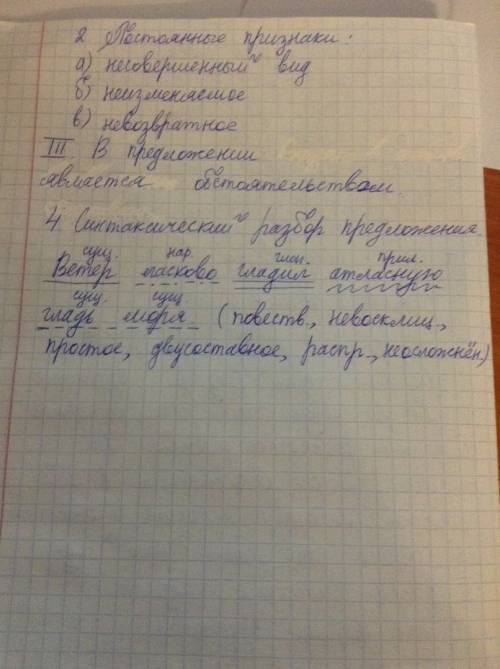 2 Постоянные признаки:
а) несовершенный вид
б) неизменяемое
в) невозвратное
III В предложении
является обстоятельством.
4. Синтаксический разбор предложения.
сущ. нар. глаг. прил.
Ветер ласково гладил атласную
сущ. сущ
гладь моря. (повеств., невосклиц.,
простое, двусоставное, распр., неосложнён)